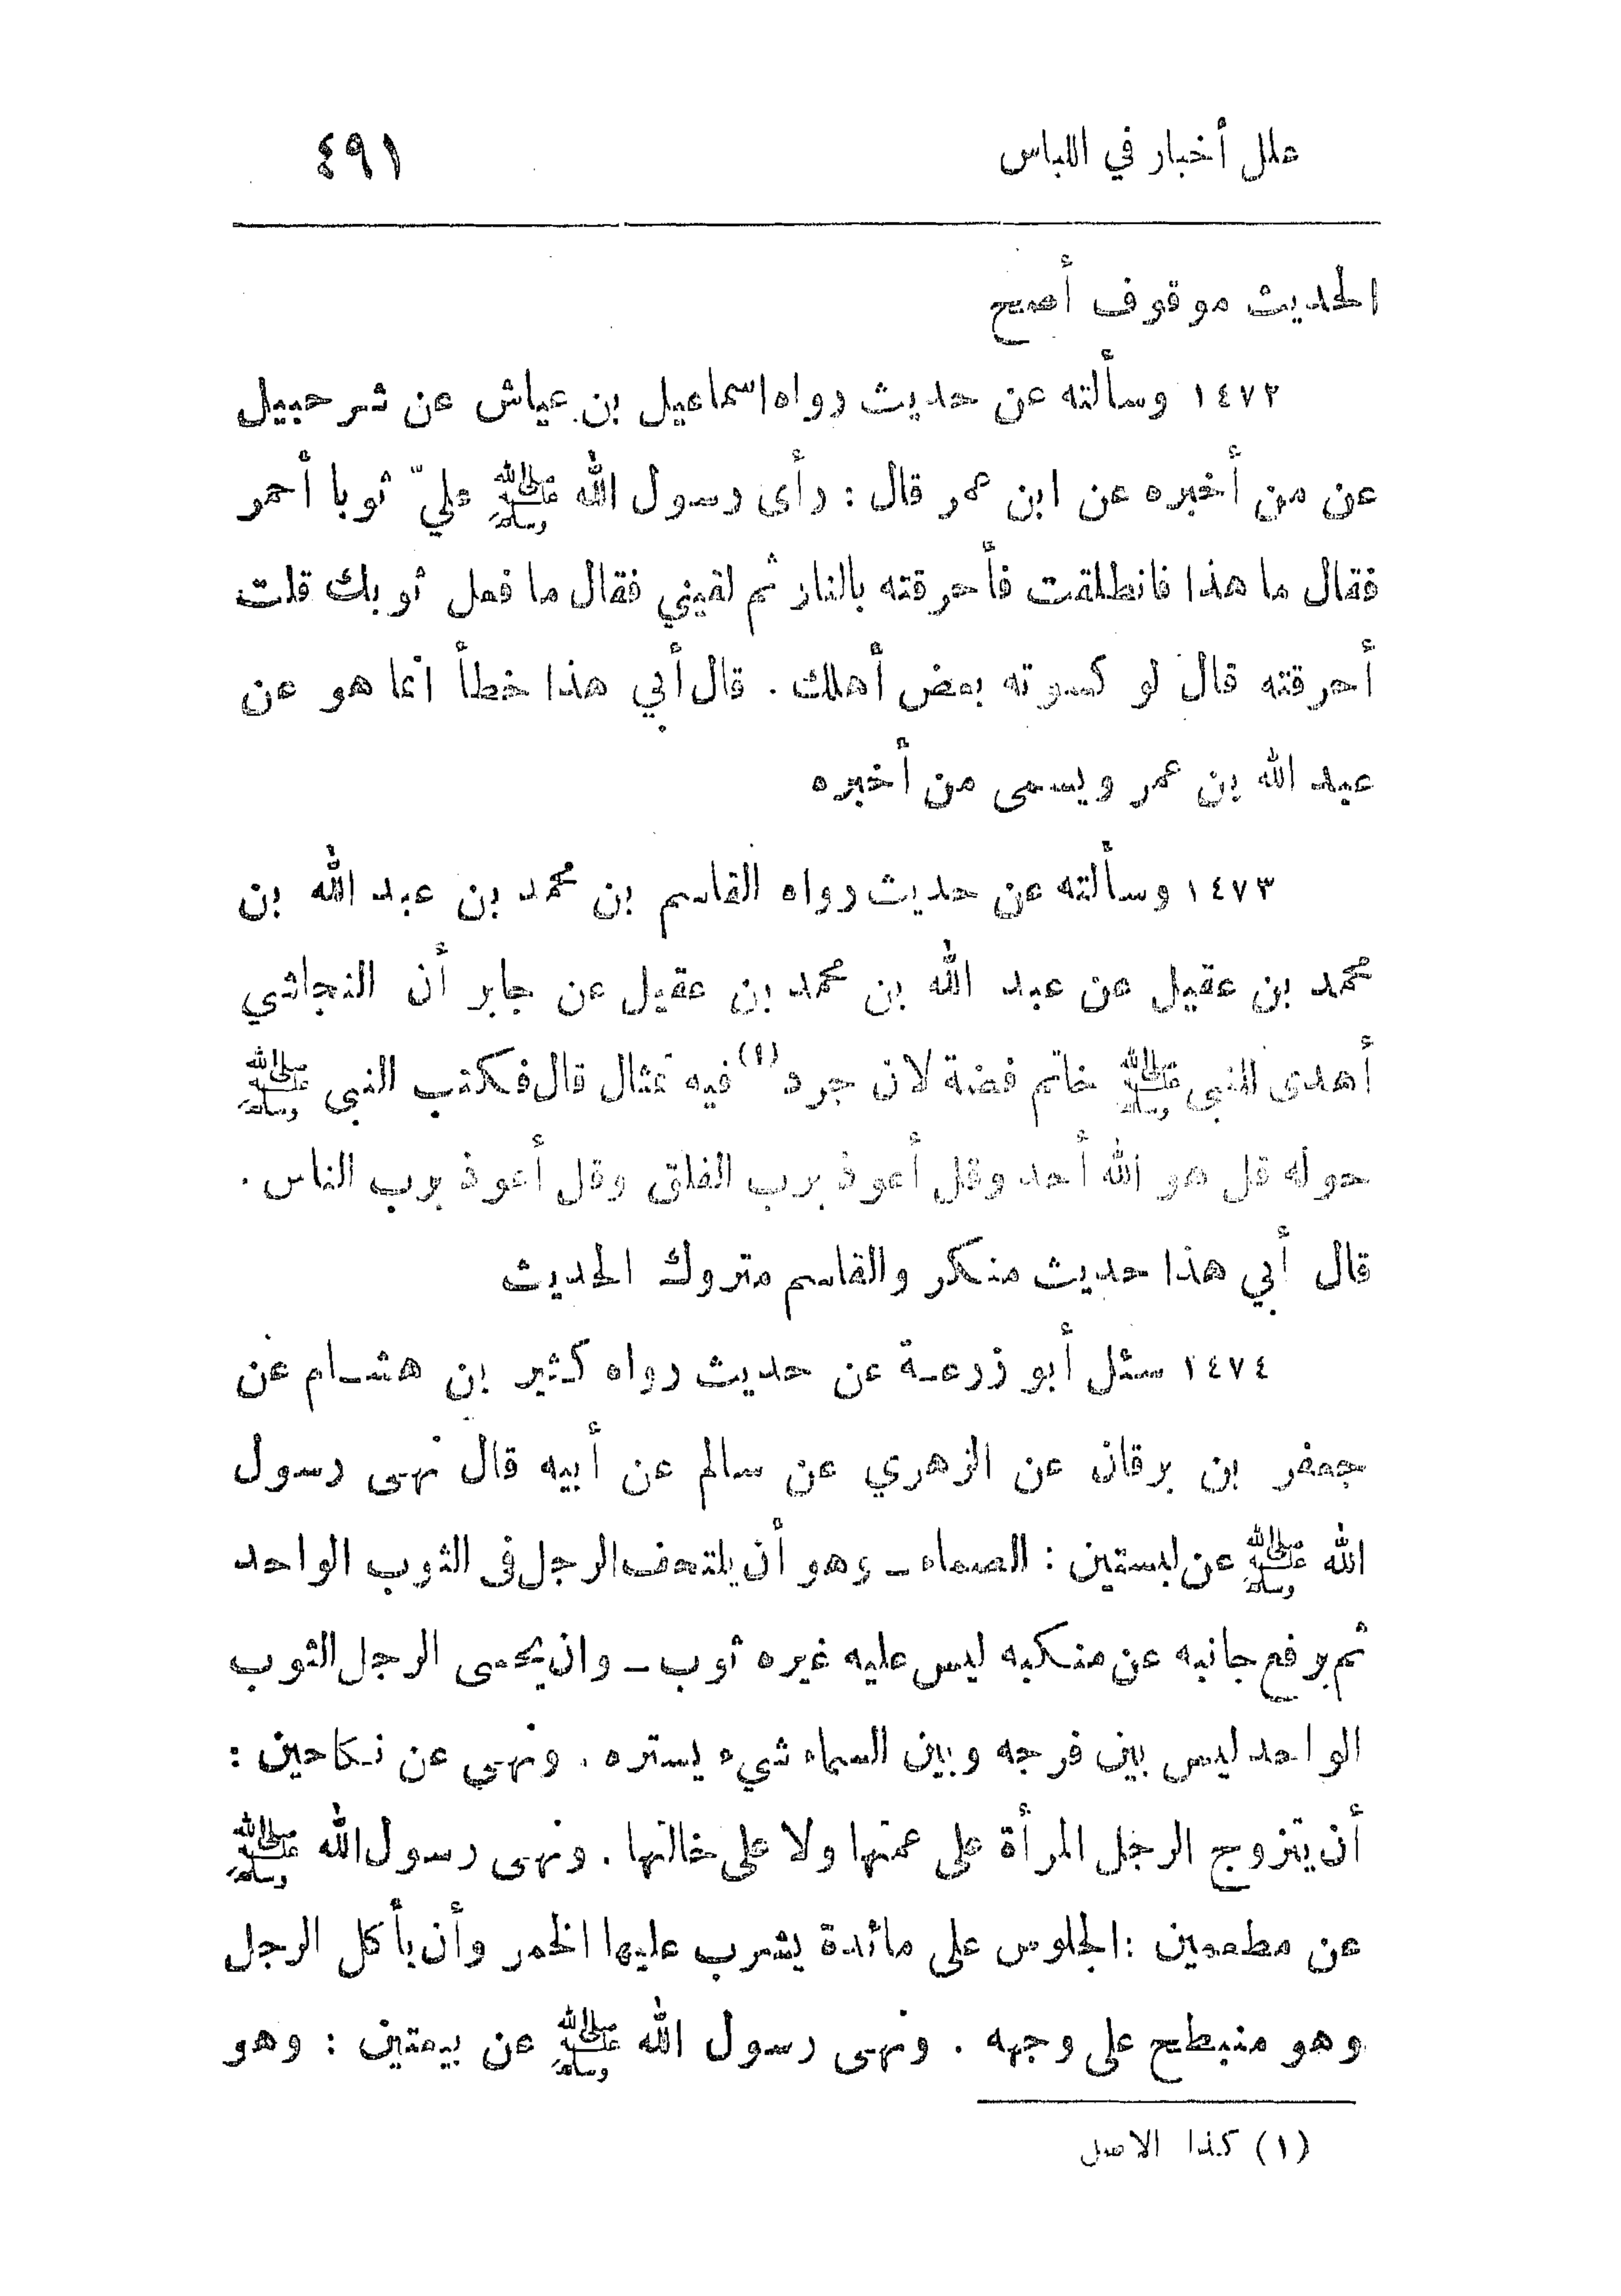 علل أخبار في اللباس ٤٩١
الحديث موقوف أصح
١٤٧٢ وسألته عن حديث رواه اسماعيل بن عياش عن شرحبيل
عن من أخبره عن ابن عمر قال : رأى رسول الله ﷺ عليّ ثوبا أحمر
فقال ما هذا فانطلقت فأحرقته بالنار ثم لقيني فقال ما فعل ثوبك قلت
أحرقته قال لو كسوته بعض أهلك . قال أبي هذا خطأ انما هو عن
عبد الله بن عمر ويسمى من أخبره
١٤٧٣ وسألته عن حديث رواه القاسم بن محمد بن عبد الله بن
محمد بن عقيل عن عبد الله بن محمد بن عقيل عن جابر أن النجاشي
أهدى للنبي ﷺ خاتم فضة لان جرد (١) فيه تمثال قال فكتب النبي ﷺ
حوله قل هو الله أحد وقل أعوذ برب الفلق وقل أعوذ برب الناس .
قال أبي هذا حديث منكر والقاسم متروك الحديث
١٤٧٤ سئل أبو زرعة عن حديث رواه كثير بن هشام عن
جعفر بن برقان عن الزهري عن سالم عن أبيه قال نهى رسول
الله ﷺ عن لبستين : الصماء ــ وهو أن يلتحف الرجل فى الثوب الواحد
ثم يرفع جانبه عن منكبه ليس عليه غيره ثوب ــ وان يحمى الرجل الثوب
الواحد ليس بين فرجه وبين السماء شيء يستره . ونهى عن نكاحين :
أن يتزوج الرجل المرأة على عمتها ولا على خالتها . ونهى رسول الله ﷺ
عن مطعمين : الجلوس على مائدة يشرب عليها الخمر وأن يأكل الرجل
وهو منبطح على وجهه . ونهى رسول الله ﷺ عن بيعتين : وهو
(١) كذا الاصل